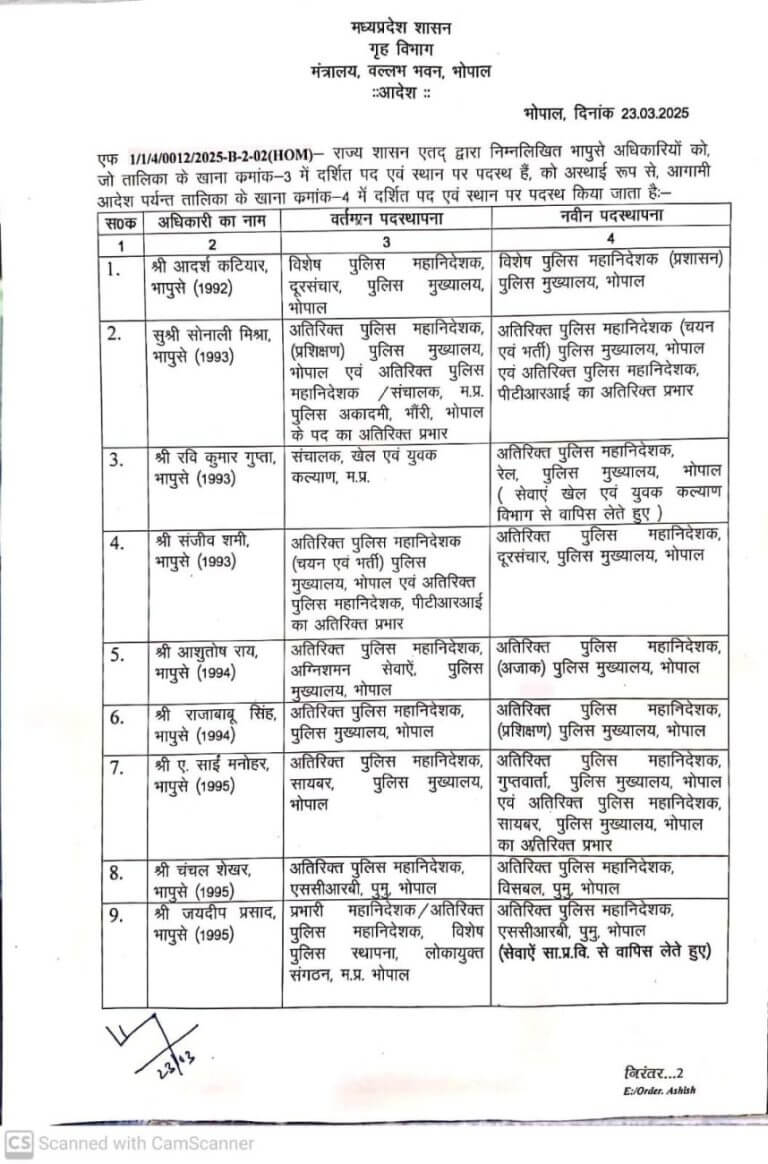 मध्यप्रदेश शासन
गृह विभाग
मंत्रालय, वल्लभ भवन, भोपाल
::आदेश ::
भोपाल, दिनांक 23.03.2025
एफ 1/1/4/0012/2025-B-2-02(HOM)– राज्य शासन एतद् द्वारा निम्नलिखित भापुसे अधिकारियों को,
जो तालिका के खाना क्रमांक–3 में दर्शित पद एवं स्थान पर पदस्थ हैं, को अस्थाई रूप से, आगामी
आदेश पर्यन्त तालिका के खाना क्रमांक–4 में दर्शित पद एवं स्थान पर पदस्थ किया जाता है:–
स0क अधिकारी का नाम वर्तमान पदस्थापना नवीन पदस्थापना
1 2 3 4
1. श्री आदर्श कटियार, विशेष पुलिस महानिदेशक, विशेष पुलिस महानिदेशक (प्रशासन)
भापुसे (1992) दूरसंचार, पुलिस मुख्यालय, पुलिस मुख्यालय, भोपाल
भोपाल
2. सुश्री सोनाली मिश्रा, अतिरिक्त पुलिस महानिदेशक, अतिरिक्त पुलिस महानिदेशक (चयन
भापुसे (1993) (प्रशिक्षण) पुलिस मुख्यालय, एवं भर्ती) पुलिस मुख्यालय, भोपाल
भोपाल एवं अतिरिक्त पुलिस एवं अतिरिक्त पुलिस महानिदेशक,
महानिदेशक /संचालक, म.प्र. पीटीआरआई का अतिरिक्त प्रभार
पुलिस अकादमी, भौंरी, भोपाल
के पद का अतिरिक्त प्रभार
3. श्री रवि कुमार गुप्ता, संचालक, खेल एवं युवक अतिरिक्त पुलिस महानिदेशक,
भापुसे (1993) कल्याण, म.प्र. रेल, पुलिस मुख्यालय, भोपाल
( सेवाएं खेल एवं युवक कल्याण
विभाग से वापिस लेते हुए )
4. श्री संजीव शमी, अतिरिक्त पुलिस महानिदेशक अतिरिक्त पुलिस महानिदेशक,
भापुसे (1993) (चयन एवं भर्ती) पुलिस दूरसंचार, पुलिस मुख्यालय, भोपाल
मुख्यालय, भोपाल एवं अतिरिक्त
पुलिस महानिदेशक, पीटीआरआई
का अतिरिक्त प्रभार
5. श्री आशुतोष राय, अतिरिक्त पुलिस महानिदेशक, अतिरिक्त पुलिस महानिदेशक,
भापुसे (1994) अग्निशमन सेवाऐं, पुलिस (अजाक) पुलिस मुख्यालय, भोपाल
मुख्यालय, भोपाल
6. श्री राजाबाबू सिंह, अतिरिक्त पुलिस महानिदेशक, अतिरिक्त पुलिस महानिदेशक,
भापुसे (1994) पुलिस मुख्यालय, भोपाल (प्रशिक्षण) पुलिस मुख्यालय, भोपाल
7. श्री ए. साई मनोहर, अतिरिक्त पुलिस महानिदेशक, अतिरिक्त पुलिस महानिदेशक,
भापुसे (1995) सायबर, पुलिस मुख्यालय, गुप्तवार्ता, पुलिस मुख्यालय, भोपाल
भोपाल एवं अतिरिक्त पुलिस महानिदेशक,
सायबर, पुलिस मुख्यालय, भोपाल
का अतिरिक्त प्रभार
8. श्री चंचल शेखर, अतिरिक्त पुलिस महानिदेशक, अतिरिक्त पुलिस महानिदेशक,
भापुसे (1995) एससीआरबी, पुमु, भोपाल विसबल, पुमु, भोपाल
9. श्री जयदीप प्रसाद, प्रभारी महानिदेशक/अतिरिक्त अतिरिक्त पुलिस महानिदेशक,
भापुसे (1995) पुलिस महानिदेशक, विशेष एससीआरबी, पुमु, भोपाल
पुलिस स्थापना, लोकायुक्त (सेवाऐं सा.प्र.वि. से वापिस लेते हुए)
संगठन, म.प्र. भोपाल
23/03
निरंतर...2
E:/Order. Ashish
CS Scanned with CamScanner